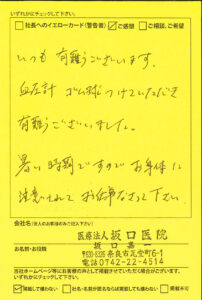 いずれかにチェックして下さい。
□社長へのイエローカード(警告書) ☑ご感想 □ご相談、ご希望
いつも 有難うございます。
血圧計 ゴム球 つけていただき
有難うございました。
暑い時期ですので お身体に
注意されて お仕事なさって下さい。
会社名(法人のお客様のみご記入下さい)
医療法人 坂口医院
お名前・お役職
坂口
〒630-8325 奈良市瓦堂町6-1
電話0742-22-4514
当社ホームページ等にお客様の声として掲載させていただく場合がございます。
いずれかにチェックして下さい。
☑掲載して構わない □社名・名前が匿名ならば掲載しても構わない □掲載不可